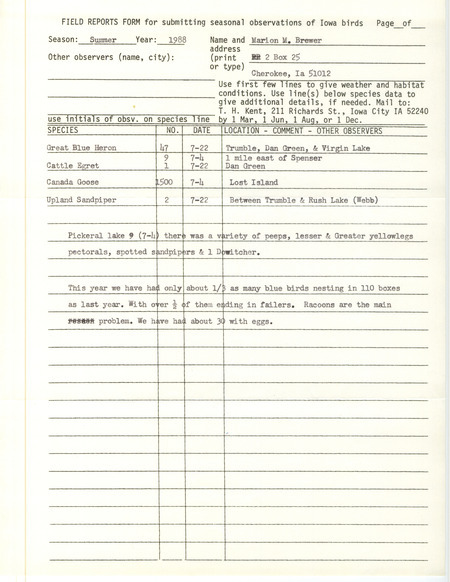 FIELD REPORTS FORM for submitting seasonal observations of Iowa birds Page__of__
Season: Summer Year: 1988 Name and Marion M. Brewer
address
Other observers (name, city): (print 2 Box 25
or type)
Cherokee, Ia 51012
Use first few lines to give weather and habitat
conditions. Use line(s) below species data to
give additional details, if needed. Mail to:
T. H. Kent, 211 Richards St., Iowa City IA 52240
use initials of obsv. on species line by 1 Mar, 1 Jun, 1 Aug, or 1 Dec.
SPECIES NO. DATE LOCATION - COMMENT - OTHER OBSERVERS
Great Blue Heron 47 7-22 Trumble, Dan Green, & Virgin Lake
9 7-4 1 mile east of Spenser
Cattle Egret 1 7-22 Dan Green
Canada Goose 1500 7-4 Lost Island
Upland Sandpiper 2 7-22 Between Trumble & Rush Lake (Webb)
Pickeral lake 9 (7-4) there was a variety of peeps, lesser & Greater yellowlegs
pectorals, spotted sandpipers & 1 Dowitcher.
This year we have had only about 1/3 as many blue birds nesting in 110 boxes
as last year. With over ½ of them ending in failers. Racoons are the main
problem. We have had about 30 with eggs.